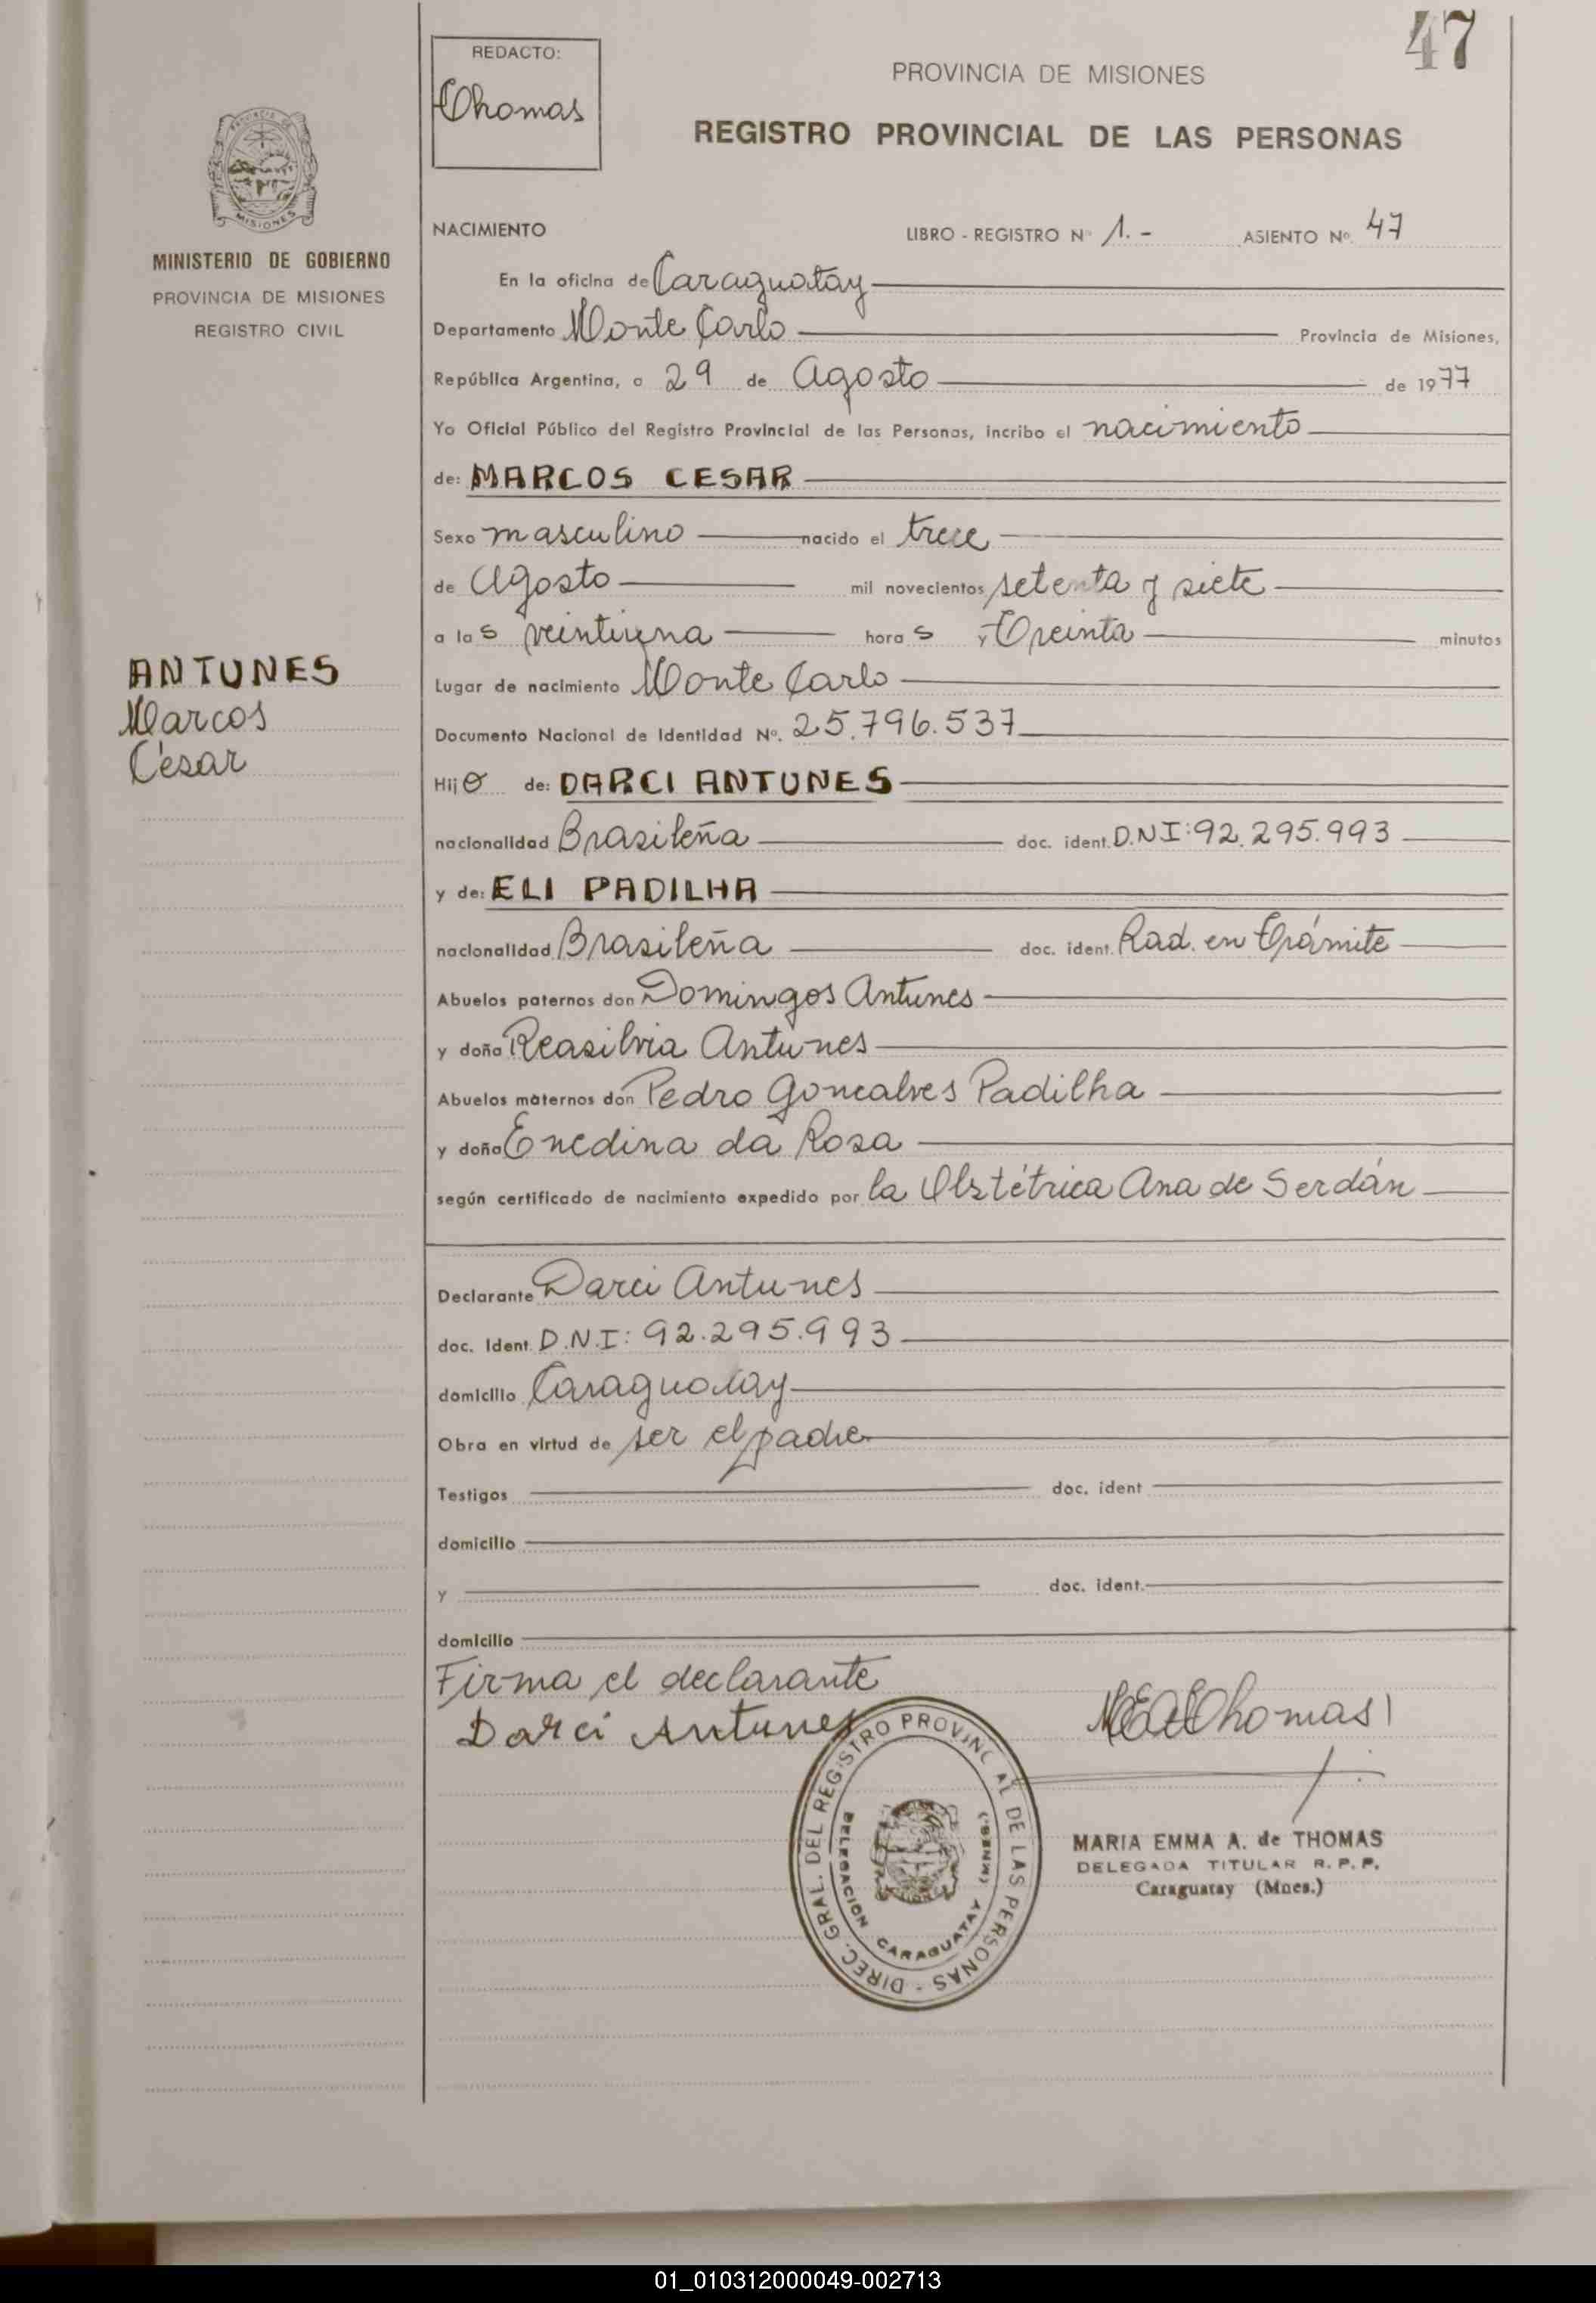 47
REDACTO:
Thomas
PROVINCIA DE MISIONES
REGISTRO PROVINCIAL DE LAS PERSONAS
MISIONES
MINISTERIO DE GOBIERNO
PROVINCIA DE MISIONES
REGISTRO CIVIL
ANTUNES
Marcos
César
NACIMIENTO LIBRO - REGISTRO Nº 1.- ASIENTO Nº 47
En la oficina de Caraguatay
Departamento Monte Carlo Provincia de Misiones,
República Argentina, a 29 de Agosto de 1977
Yo Oficial Público del Registro Provincial de las Personas, incribo el nacimiento
de: MARCOS CESAR
Sexo masculino nacido el trece
de Agosto mil novecientos setenta y siete
a las veintiuna horas y Treinta minutos
Lugar de nacimiento Monte Carlo
Documento Nacional de Identidad Nº. 25.796.537
Hijo de: DARCI ANTUNES
nacionalidad Brasileña doc. ident. D.N.I: 92.295.993
y de: ELI PADILHA
nacionalidad Brasileña doc. ident. Rad. en Trámite
Abuelos paternos don Domingos Antunes
y doña Reasilvia Antunes
Abuelos maternos don Pedro Goncalves Padilha
y doña Enedina da Rosa
según certificado de nacimiento expedido por la Obstétrica Ana de Serdán
Declarante Darci Antunes
doc. Ident. D.N.I: 92.295.993
domicilio Caraguatay
Obra en virtud de ser el padre
Testigos doc. ident
domicilio
y doc. ident.
domicilio
Firma el declarante
Darci Antunes
Thomas
DIREC. GRAL. DEL REGISTRO PROVINCIAL DE LAS PERSONAS -
DELEGACION CARAGUATAY (MNES.)
MARIA EMMA A. de THOMAS
DELEGADA TITULAR R. P. P.
Caraguatay (Mnes.)
01_010312000049-002713